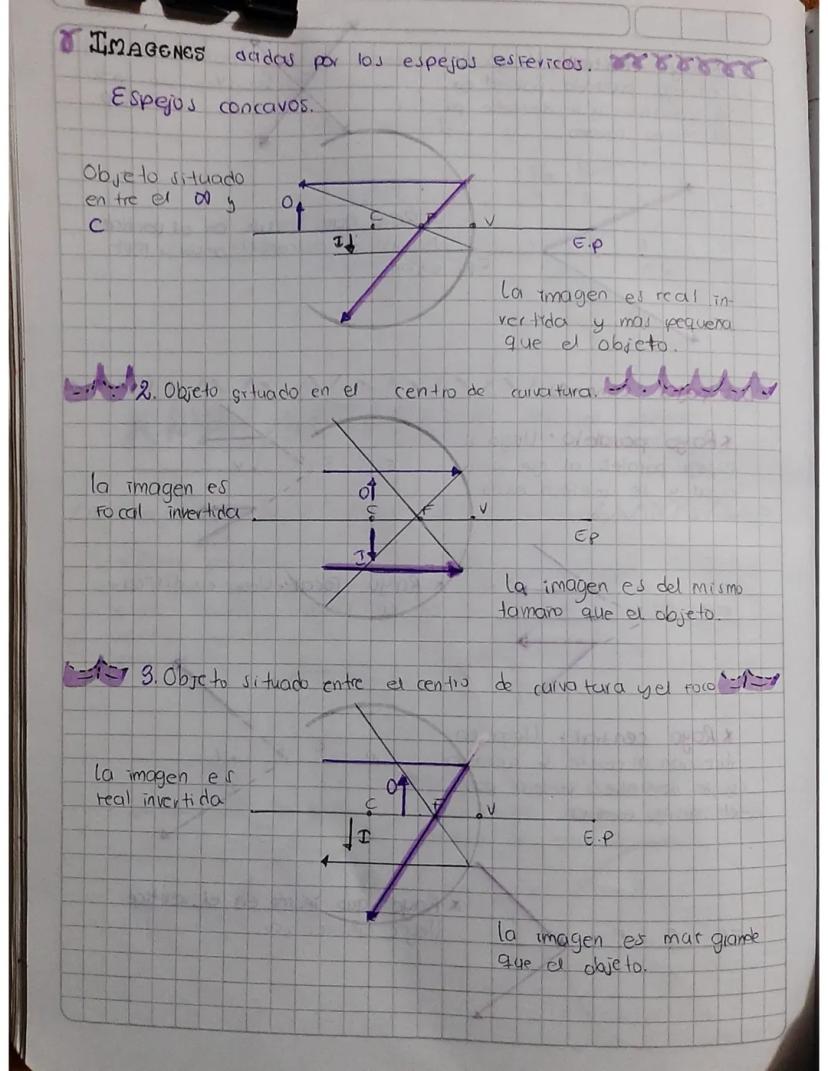 IMAGENES dadas por los espejos esfericos.
Espejos concavos.
Objeto situado
entre el ∞ y
C
O
C
F
V
I
E.P
la imagen es real in-
vertida y mas pequeña
que el objeto.
2. Objeto situado en el centro de curvatura.
la imagen es
Focal invertida
O
C
F
V
I
E.P
la imagen es del mismo
tamaño que el objeto.
3. Objeto situado entre el centro de curvatura y el foco
la imagen es
real invertida
O
C
F
V
I
E.P
la imagen es mas grande
que el objeto.